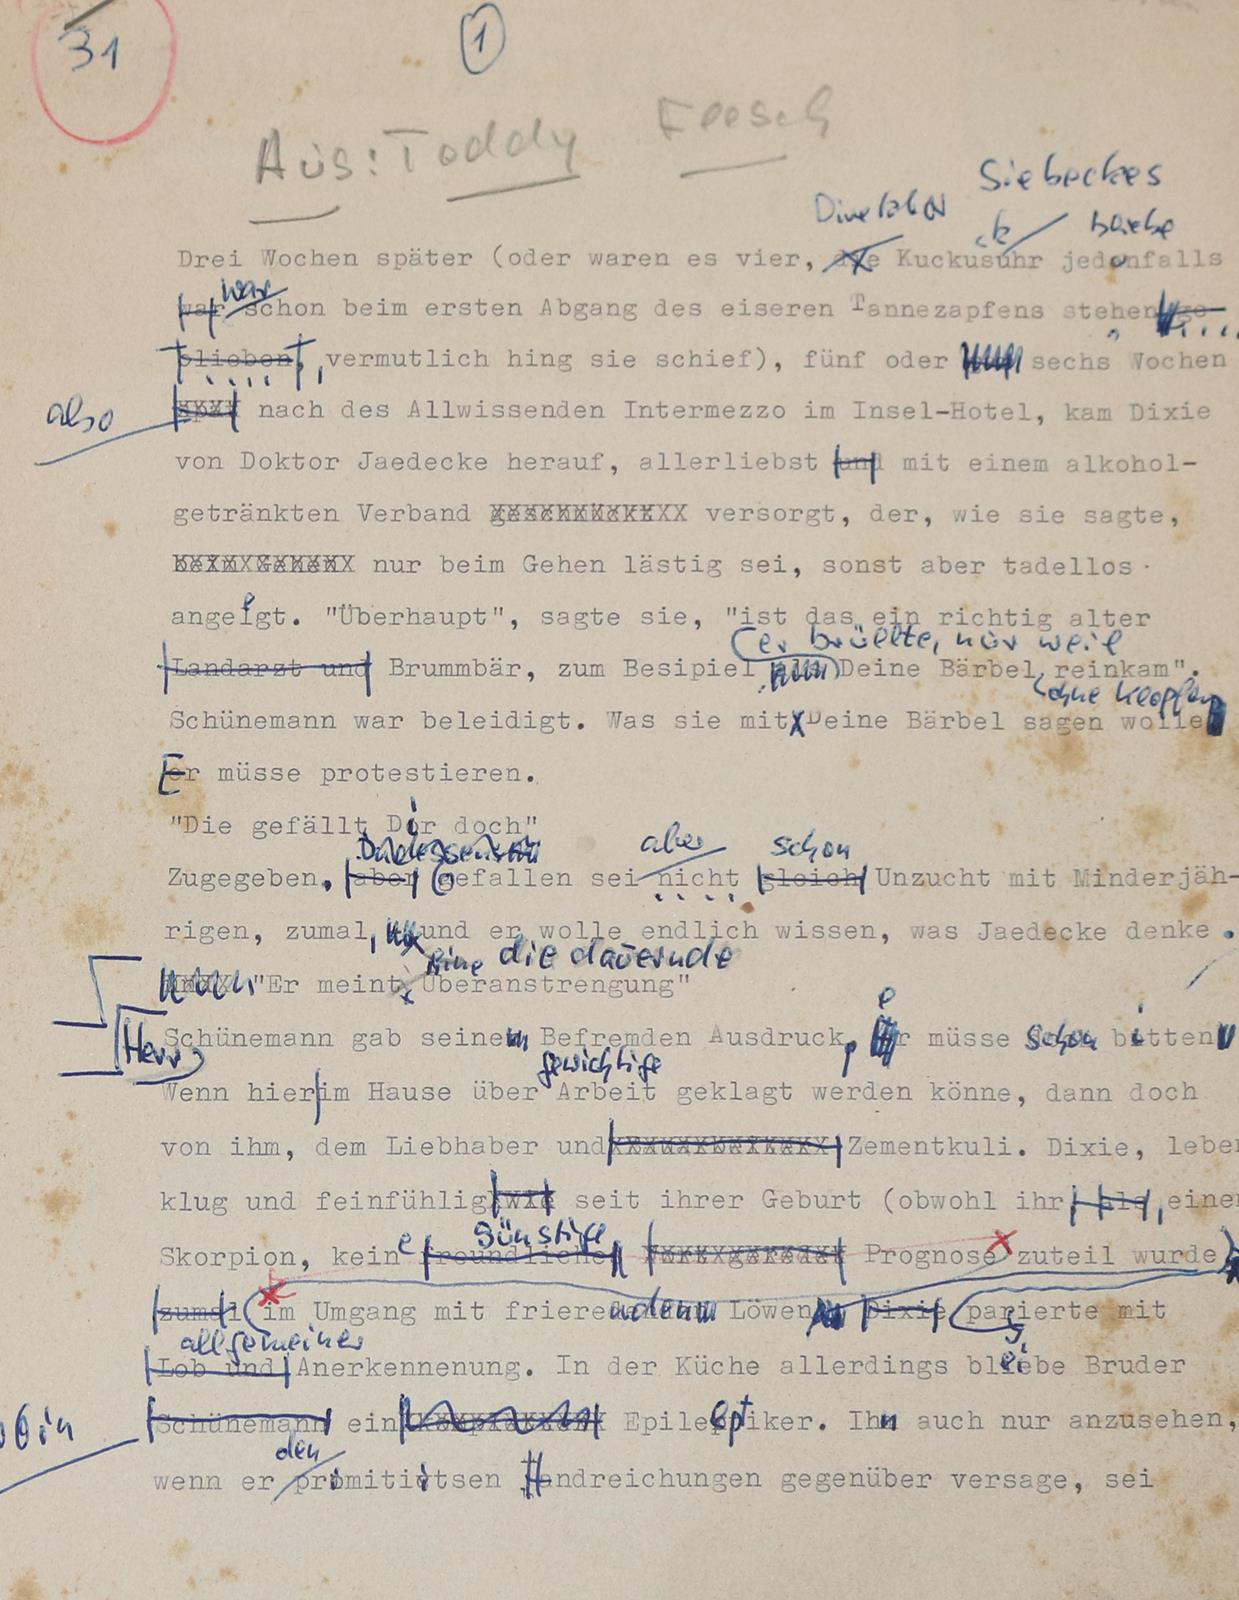 31
1
Aus: Toddy Feesch
Siebeckes
Direktor
Drei Wochen später (oder waren es vier, die Kuckusuhr jedenfalls
war
war schon beim ersten Abgang des eiseren Tannezapfens stehen ge-
blieben, vermutlich hing sie schief), fünf oder sechs Wochen
also
nach des Allwissenden Intermezzo im Insel-Hotel, kam Dixie
von Doktor Jaedecke herauf, allerliebst und mit einem alkohol-
getränkten Verband versorgt, der, wie sie sagte,
nur beim Gehen lästig sei, sonst aber tadellos
angelegt. "Überhaupt", sagte sie, "ist das ein richtig alter
(er brüllte, nur weil
Landarzt und Brummbär, zum Besipiel Deine Bärbel reinkam".
ohne klopfen
Schünemann war beleidigt. Was sie mit Deine Bärbel sagen wolle
Er müsse protestieren.
"Die gefällt Dir doch"
aber schon
Zugegeben, aber gefallen sei nicht gleich Unzucht mit Minderjäh-
rigen, zumal, und er wolle endlich wissen, was Jaedecke denke.
eine die dauernde
"Er meint Überanstrengung"
e
Herr
Schünemann gab seinem Befremden Ausdruck, er müsse schon bitten
gewichtige
Wenn hier im Hause über Arbeit geklagt werden könne, dann doch
von ihm, dem Liebhaber und Zementkuli. Dixie, leben
klug und feinfühlig wie seit ihrer Geburt (obwohl ihr, als, einen
günstige
Skorpion, keine freundlichen Prognose zuteil wurde)
zumal im Umgang mit frierendenden Löwen Dixie parierte mit
allgemeiner
Lob und Anerkennenung. In der Küche allerdings bleibe Bruder
Schünemann ein Epileptiker. Ihn auch nur anzusehen,
den
wenn er primitivtsen Handreichungen gegenüber versage, sei